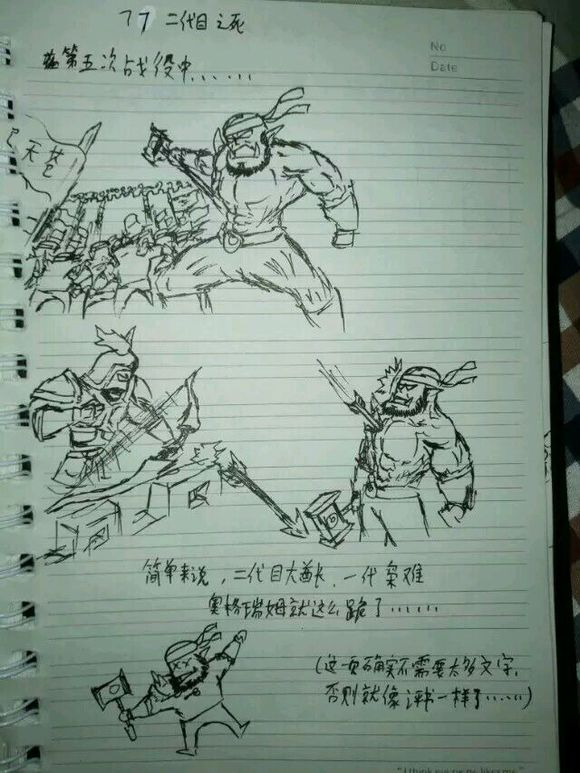 77 二代目之死
No
第五次战役中......
Date
天
简单来说，二代目大酋长，一代枭难
奥格瑞姆就这么跪了......
(这一页确实不需要太多文字，
否则就像评书一样了......)